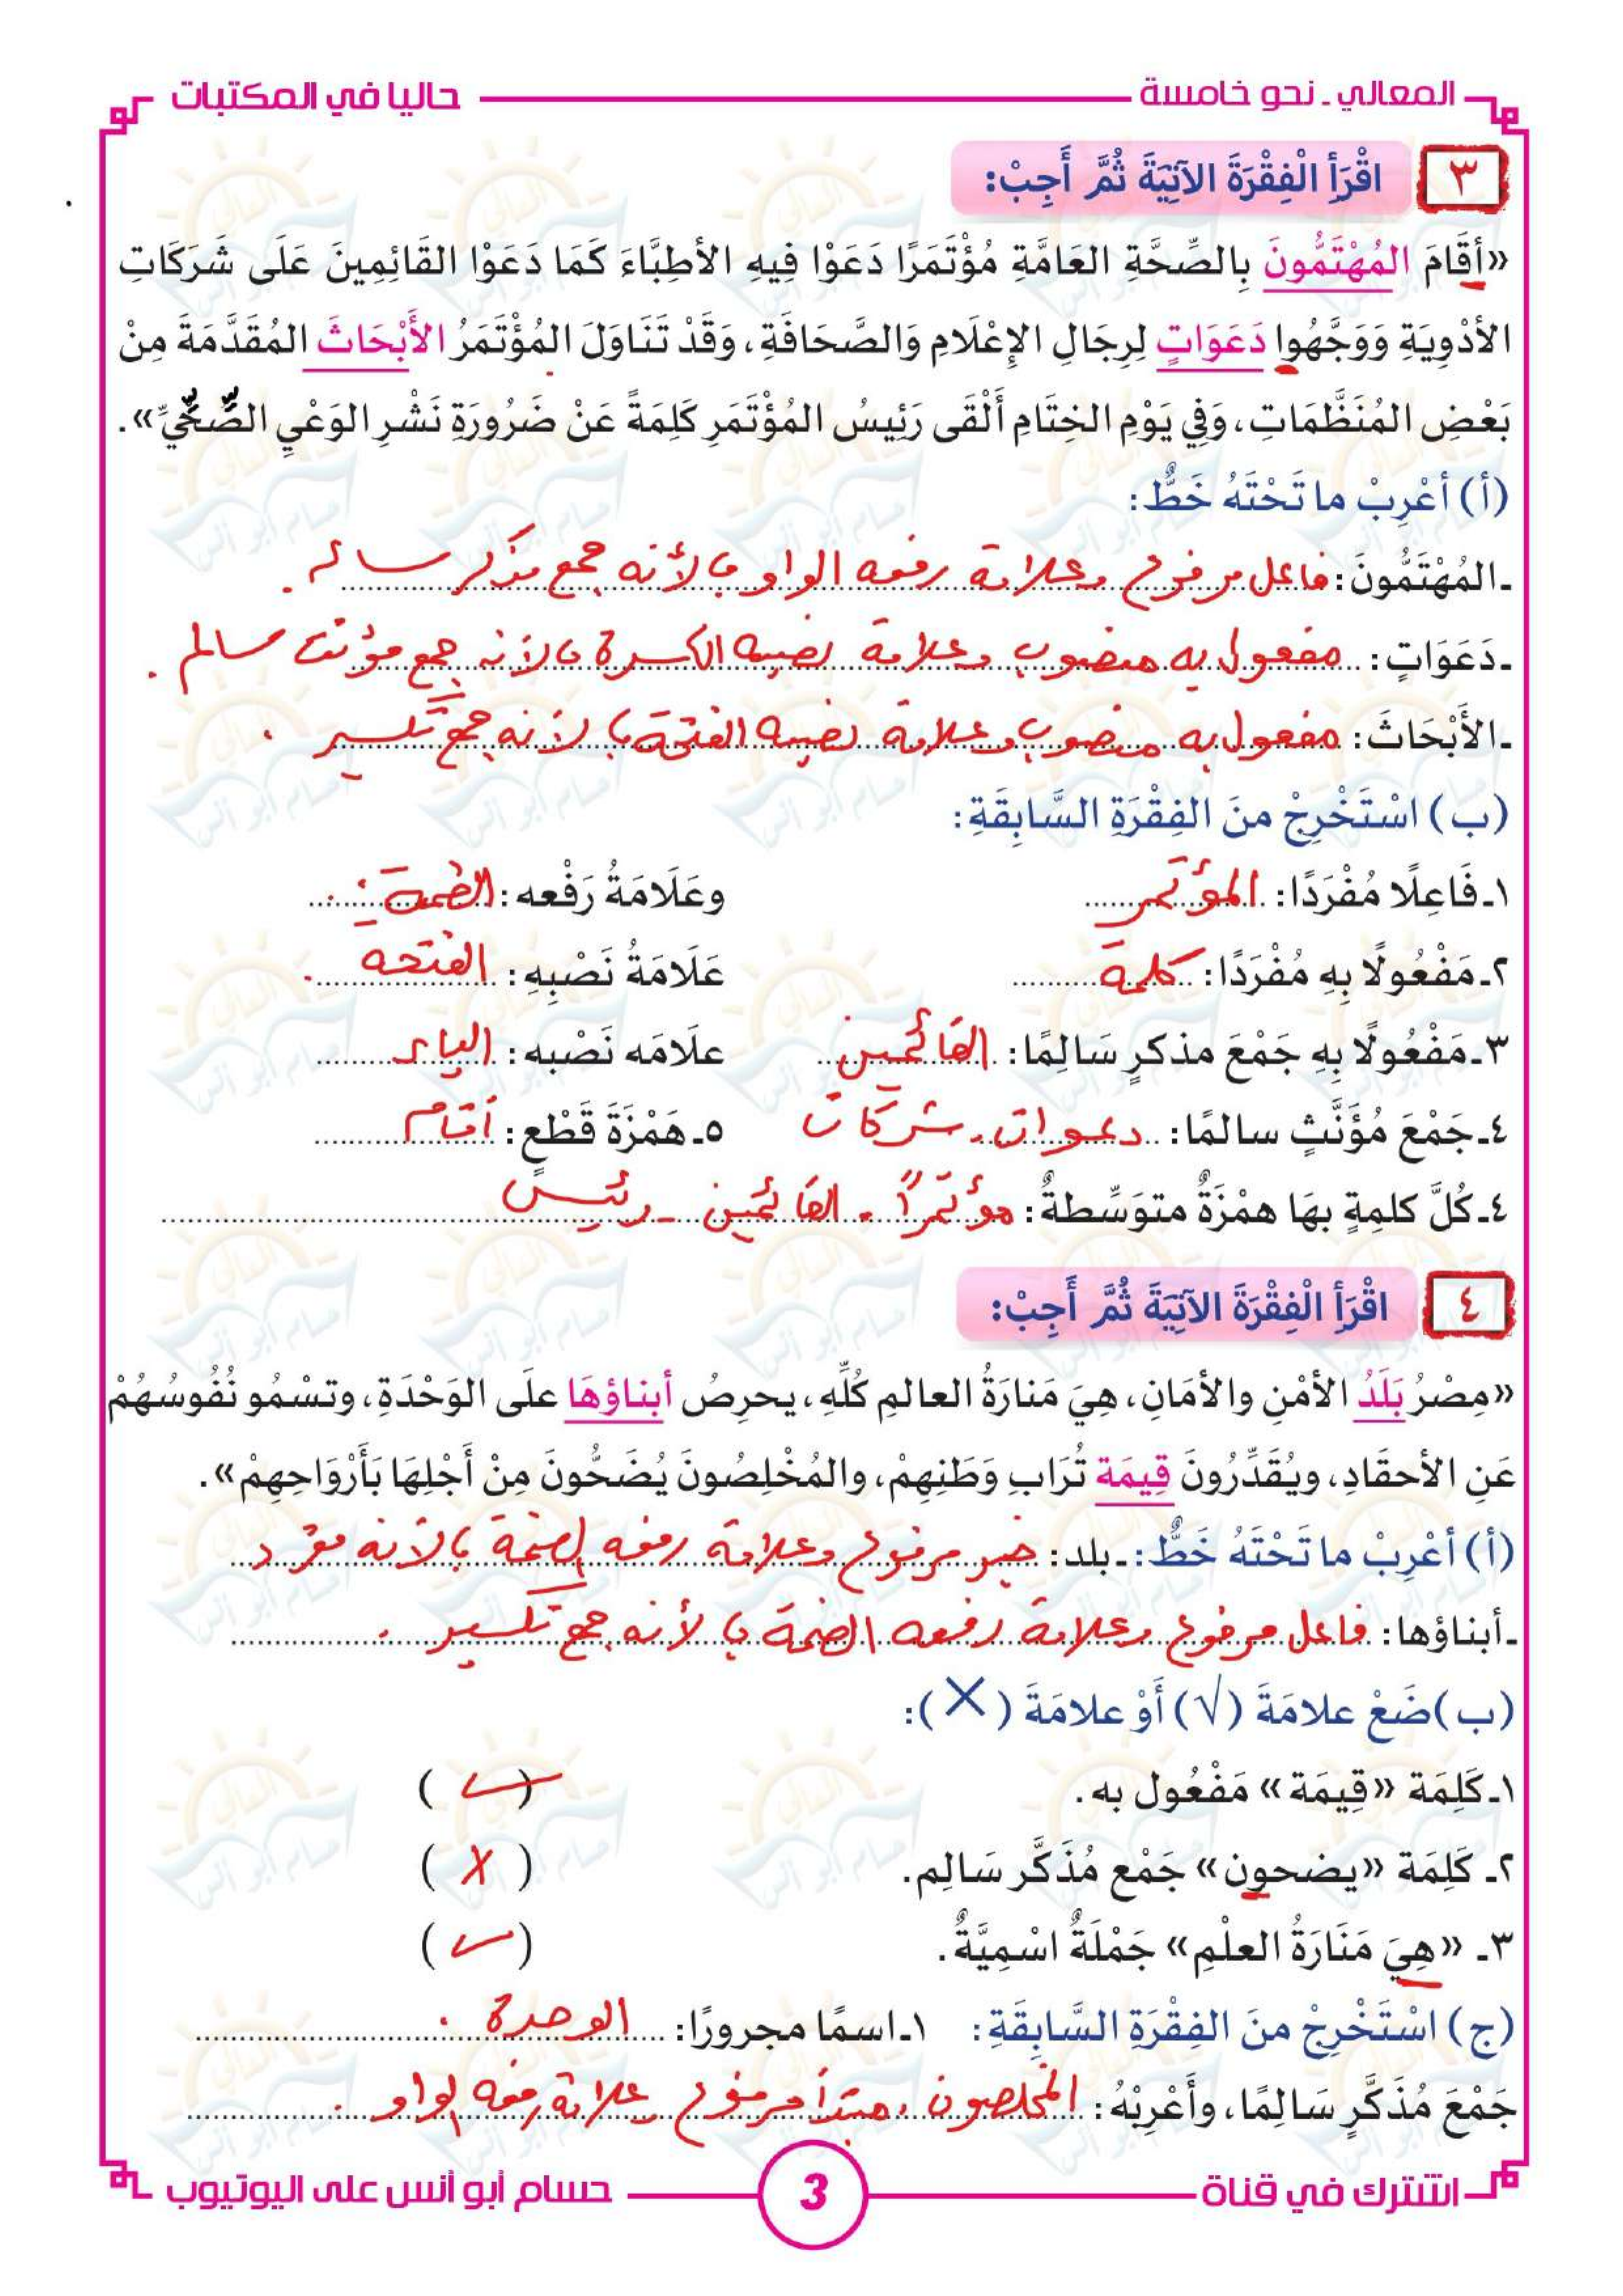 المعالي - نحو خامسة
حاليا في المكتبات
٣ اقْرَأ الْفِقْرَةَ الآتِيَةَ ثُمَّ أَجِبْ:
«أقَامَ المُهْتَمُّونَ بِالصِّحَّةِ العَامَّةِ مُؤْتَمَرًا دَعَوْا فِيهِ الأطِبَّاءَ كَمَا دَعَوْا القَائِمِينَ عَلَى شَرَكَاتِ
الأدْوِيَةِ وَوَجَّهُوا دَعَوَاتٍ لِرِجَالِ الإعْلَامِ وَالصَّحَافَةِ، وَقَدْ تَنَاوَلَ المُؤْتَمَرُ الأَبْحَاثَ المُقَدَّمَةَ مِنْ
بَعْضِ المُنَظَّمَاتِ، وَفِي يَوْمِ الخِتَامِ أَلْقَى رَئِيسُ المُؤْتَمَرِ كَلِمَةً عَنْ ضَرُورَةِ نَشْرِ الوَعْيِ الصِّحِّيِّ».
(أ) أعْرِبْ ما تَحْتَهُ خَطٌّ:
ـ المُهْتَمُّونَ: فاعل مرفوع وعلامة رفعه الواو ؛ لأنه جمع مذكر سالم .
ـ دَعَوَاتٍ: مفعول به منصوب وعلامة نصبه الكسرة ؛ لأنه جمع مؤنث سالم .
ـ الأَبْحَاثَ: مفعول به منصوب وعلامة نصبه الفتحة ؛ لأنه جمع تكسير .
(ب) اسْتَخْرِجْ منَ الفِقْرَةِ السَّابِقَةِ:
١ـ فَاعِلًا مُفْرَدًا: المؤتمر وعَلَامَةُ رَفْعه: الضمة .
٢ـ مَفْعُولًا بِهِ مُفْرَدًا: كلمة عَلَامَةُ نَصْبِهِ: الفتحه .
٣ـ مَفْعُولًا بِهِ جَمْعَ مذكرٍ سَالِمًا: القائمين علَامَه نَصْبه: الياء
٤ـ جَمْعَ مُؤَنَّثٍ سالمًا: دعوات . شركات ٥ـ هَمْزَةَ قَطْعٍ: أقام
٤ـ كُلَّ كلمةٍ بهَا همْزَةٌ متوَسِّطةٌ: مؤتمرًا - القائمين - رئيس
٤ اقْرَأ الْفِقْرَةَ الآتِيَةَ ثُمَّ أَجِبْ:
«مِصْرُ بَلَدُ الأمْنِ والأمَانِ، هِيَ مَنارَةُ العالمِ كُلِّهِ، يحرِصُ أبناؤهَا علَى الوَحْدَةِ، وتسْمُو نُفُوسُهُمْ
عَنِ الأحقَادِ، ويُقَدِّرُونَ قِيمَة تُرَابِ وَطَنِهِمْ، والمُخْلِصُونَ يُضَحُّونَ مِنْ أَجْلِهَا بَأَرْوَاحِهِمْ».
(أ) أعْرِبْ ما تَحْتَهُ خَطٌّ: ـ بلد: خبر مرفوع وعلامة رفعه الضمة ؛ لأنه مفرد
ـ أبناؤها: فاعل مرفوع وعلامة رفعه الضمة ؛ لأنه جمع تكسير .
(ب) ضَعْ علامَةَ (√) أَوْ علامَةَ (X):
١ـ كَلِمَة «قِيمَة» مَفْعُول به. (✓)
٢ـ كَلِمَة «يضحون» جَمْع مُذَكَّر سَالِم. (X)
٣ـ «هِيَ مَنَارَةُ العلْمِ» جَمْلَةٌ اسْمِيَّةٌ. (✓)
(ج) اسْتَخْرِجْ منَ الفِقْرَةِ السَّابِقَةِ: ١ـ اسمًا مجرورًا: الوحدة .
جَمْعَ مُذَكَّرٍ سَالِمًا، وأَعْرِبْهُ: المخلصون ، مبتدأ مرفوع علامة رفعه الواو .
اشترك في قناة
3
حسام أبو أنس على اليوتيوب